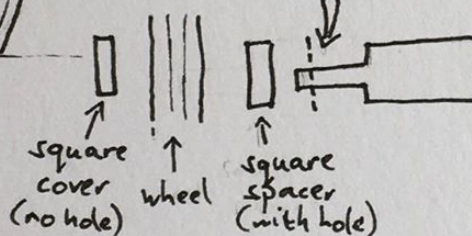 square
cover
(no hole)
wheel
square
spacer
(with hole)